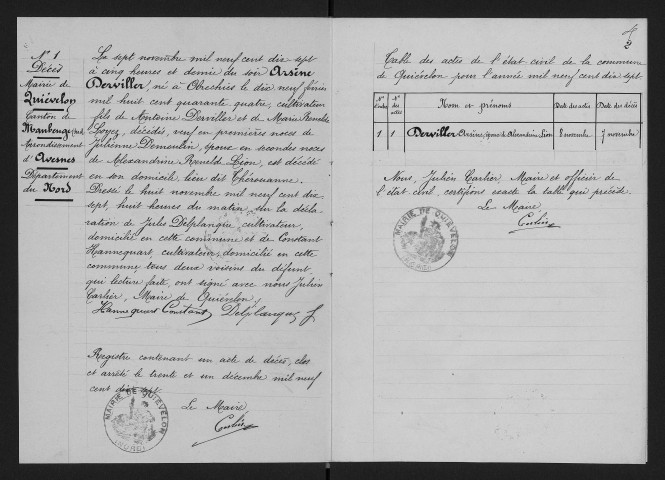 N° 1
Décès
Mairie de
Quiévelon
Canton de
Maubeuge (Sud)
Arrondissement
d'Avesnes
Département
du Nord
Le sept novembre mil neuf cent dix sept
à cinq heures et demie du soir Arsène
Derviller, né à Obrechies le dix neuf février
mil huit cent quarante quatre, cultivateur
fils de Antoine Derviller et de Marie Renelde
Loyez, décédés, veuf en premières noces de
Julienne Demeulin, époux en secondes noces
de Alexandrine Renelde Léon, est décédé
en son domicile, lieu dit Thérouanne.
Dressé le huit novembre mil neuf cent dix
sept, huit heures du matin, sur la décla-
ration de Jules Delplanque, cultivateur,
domicilié en cette commune et de Constant
Hannequart, cultivateur, domicilié en cette
commune, tous deux voisins du défunt,
qui lecture faite, ont signé avec nous Julien
Carlier, Maire de Quiévelon.
Hannequart Constant Delplanque J
Registre contenant un acte de décès, clos
et arrêté le trente et un décembre mil neuf
cent dix sept
Le Maire
Carlier
MAIRIE DE QUIEVELON
(NORD)
2
Table des actes de l'état civil de la commune
de Quiévelon pour l'année mil neuf cent dix sept
N° d'ordre N° des actes Nom et prénoms Date des actes Date des décès
1 1 Derviller Arsène, époux de Alexandrine Léon 8 novembre 7 novembre
Nous, Julien Carlier Maire et officier de
l'état civil, certifions exacte la table qui précède.
Le Maire
Carlier
MAIRIE DE QUIEVELON
(NORD)